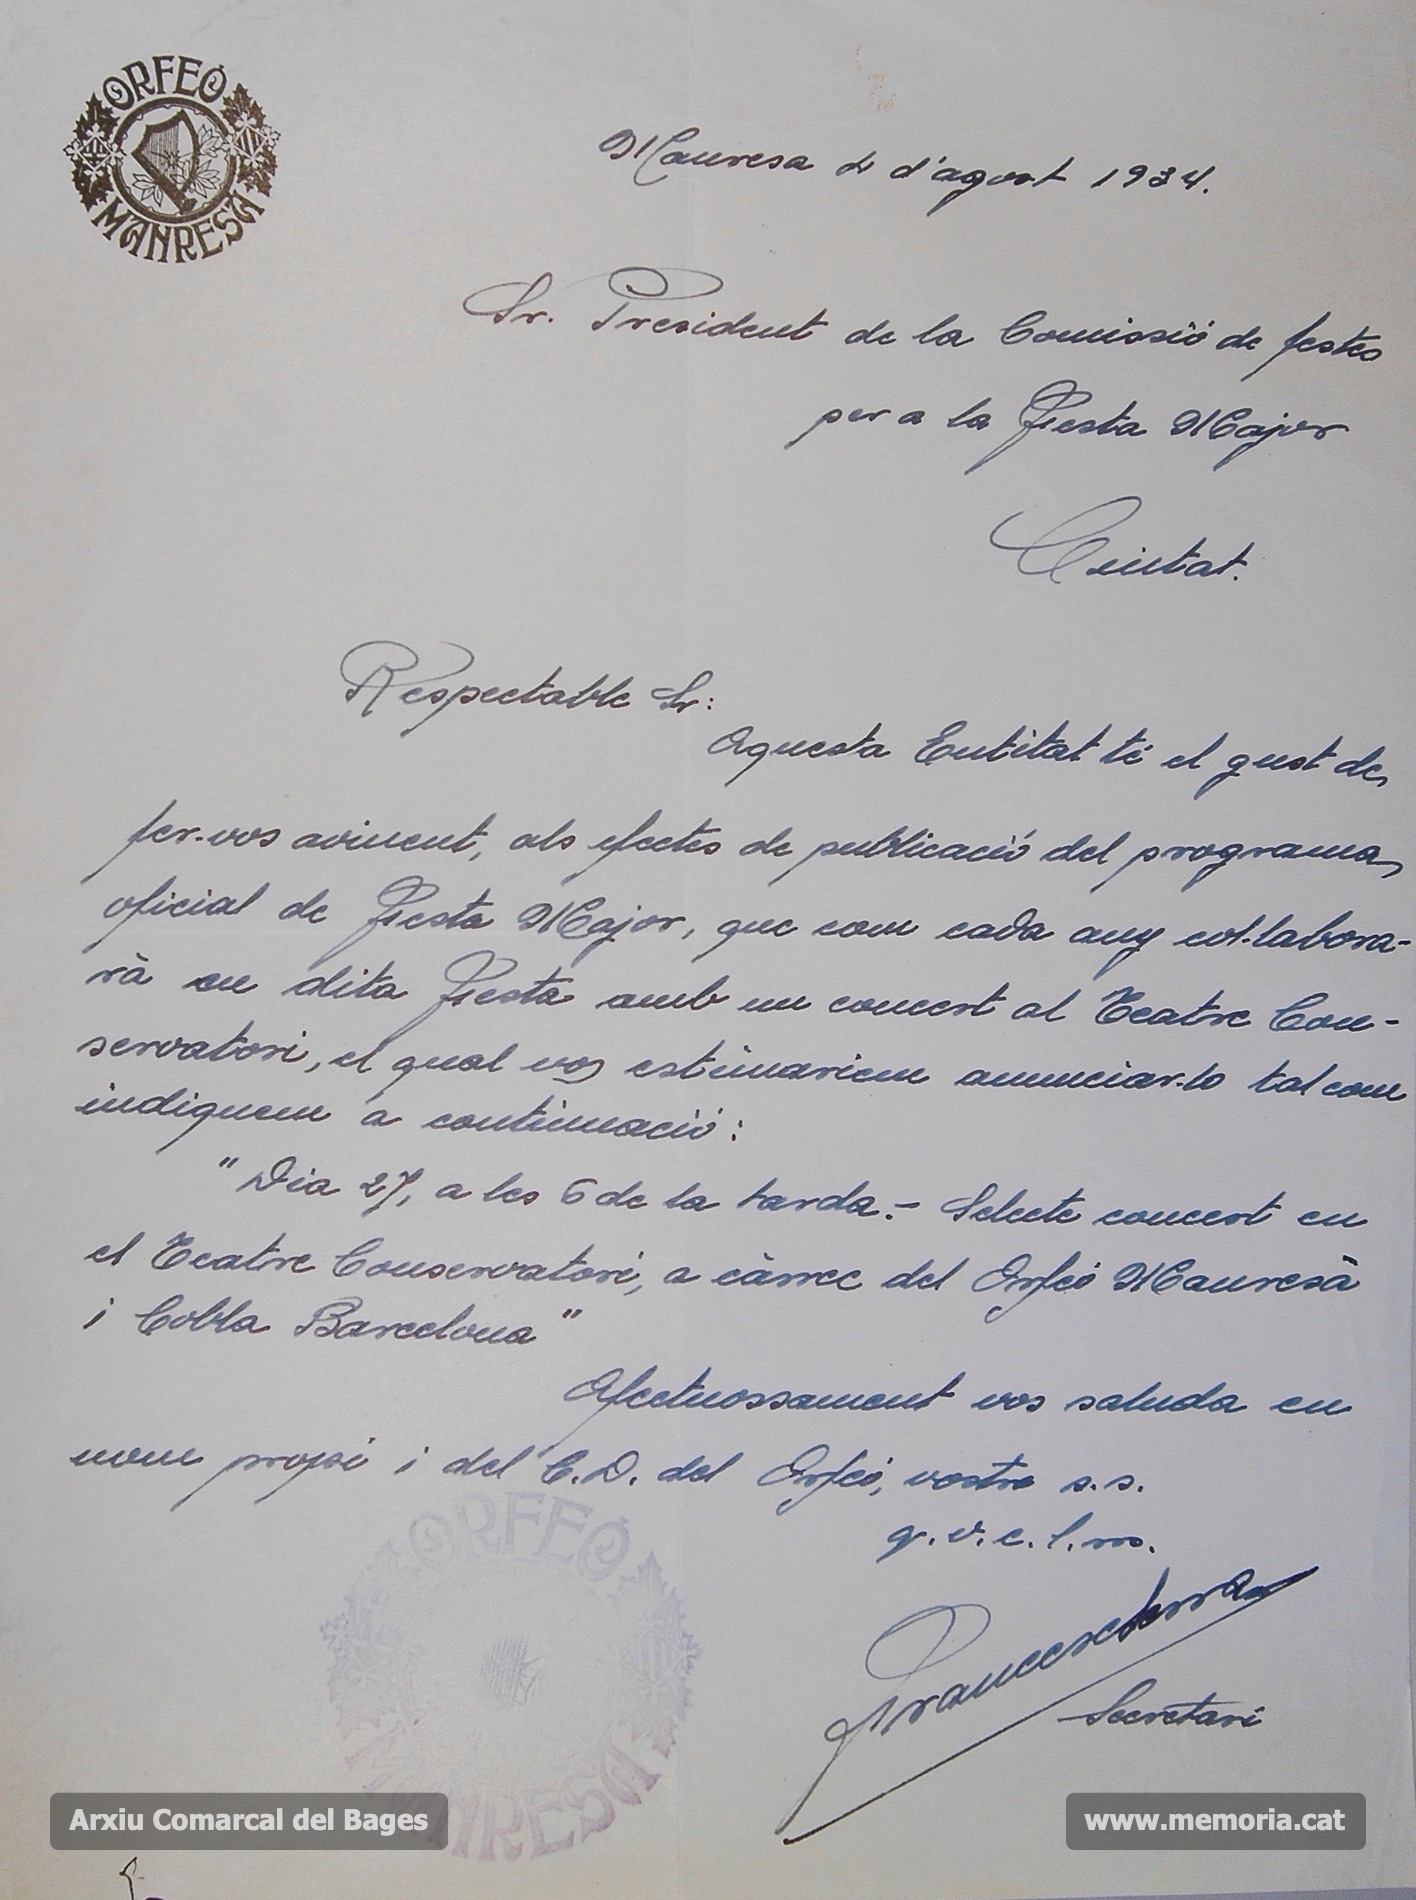 ORFEÓ
MANRESÀ
Manresa 4 d'agost 1934.
Sr. President de la Comissió de festes
per a la Festa Major
Ciutat.
Respectable Sr:
Aquesta Entitat té el gust de
fer-vos avinent, als efectes de publicació del programa
oficial de Festa Major, que com cada any col·labora-
rà en dita Festa amb un concert al Teatre Con-
servatori, el qual vos estimariem anunciar-lo tal com
indiquem a continuació:
"Dia 27, a les 6 de la tarda.- Selecte concert en
el Teatre Conservatori, a càrrec del Orfeó Manresà
i Cobla Barcelona"
Afectuossament vos saluda en
nom propi i del C.D. del Orfeó, vostre s.s.
q.v.e.l.m.
Francesc Serra
Secretari
ORFEÓ
MANRESÀ
Arxiu Comarcal del Bages
www.memoria.cat